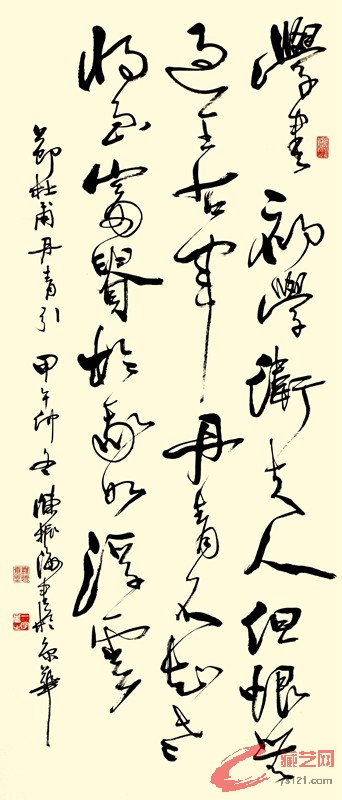 學書初學衛夫人但恨無
過王右軍丹青不知老
將至富貴於我如浮雲
節杜甫丹青引 甲午仲冬 陳振海書於京華
藏艺网
ys121.com